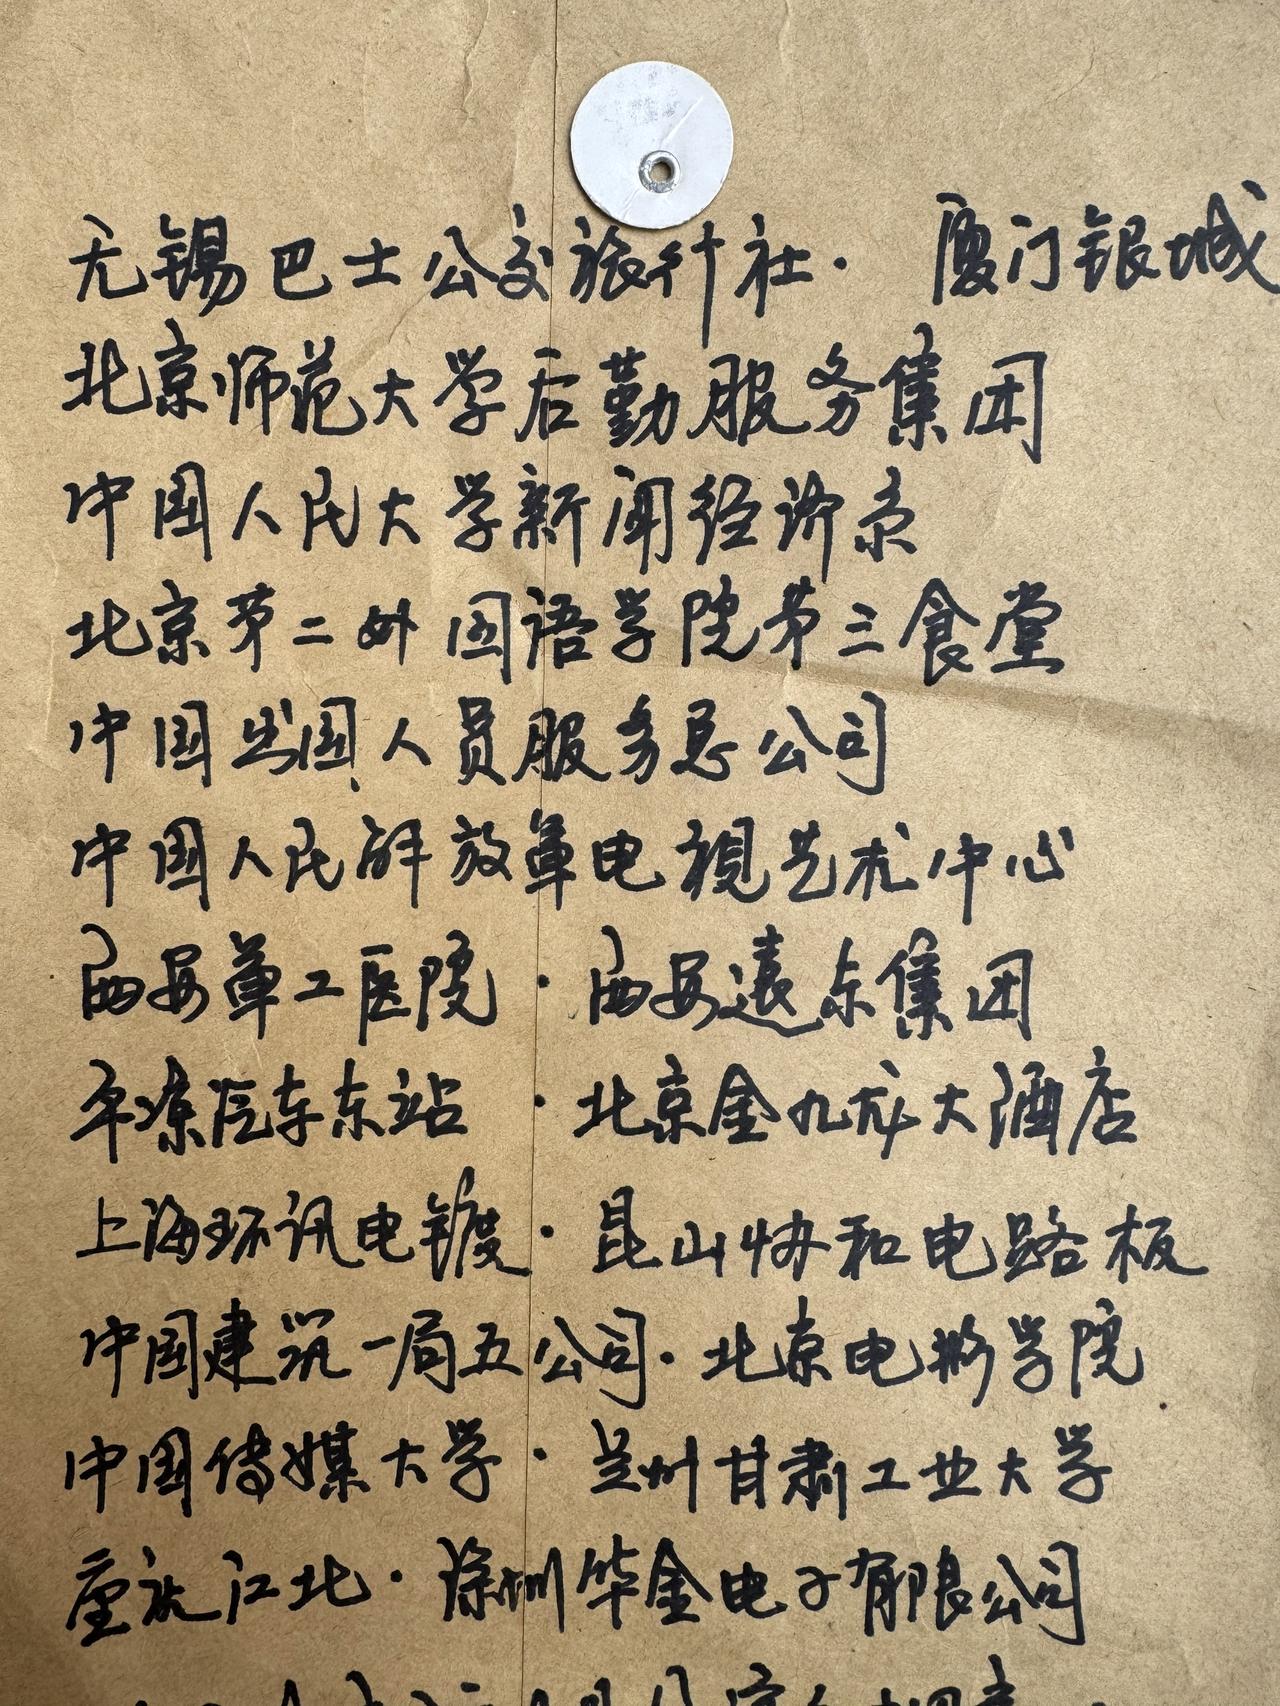 无锡巴士公交旅行社· 厦门银城
北京师范大学后勤服务集团
中国人民大学新闻经济系
北京第二外国语学院第三食堂
中国出国人员服务总公司
中国人民解放军电視艺术中心
西安军工医院·西安遠东集团
平凉汽车东站·北京金九龙大酒店
上海环讯电镀·昆山协和电路板
中国建筑一局五公司·北京电影学院
中国传媒大学·兰州甘肃工业大学
重庆江北·深圳华金电子有限公司